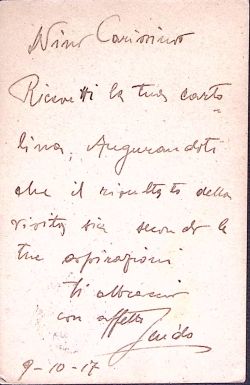 Nino Carissimo
Ricevetti la tua carto
lina, Augurandoti
che il risultato della
visita sia secondo le
tue aspirazioni
ti abbraccio
con affetto
Guido
9-10-17